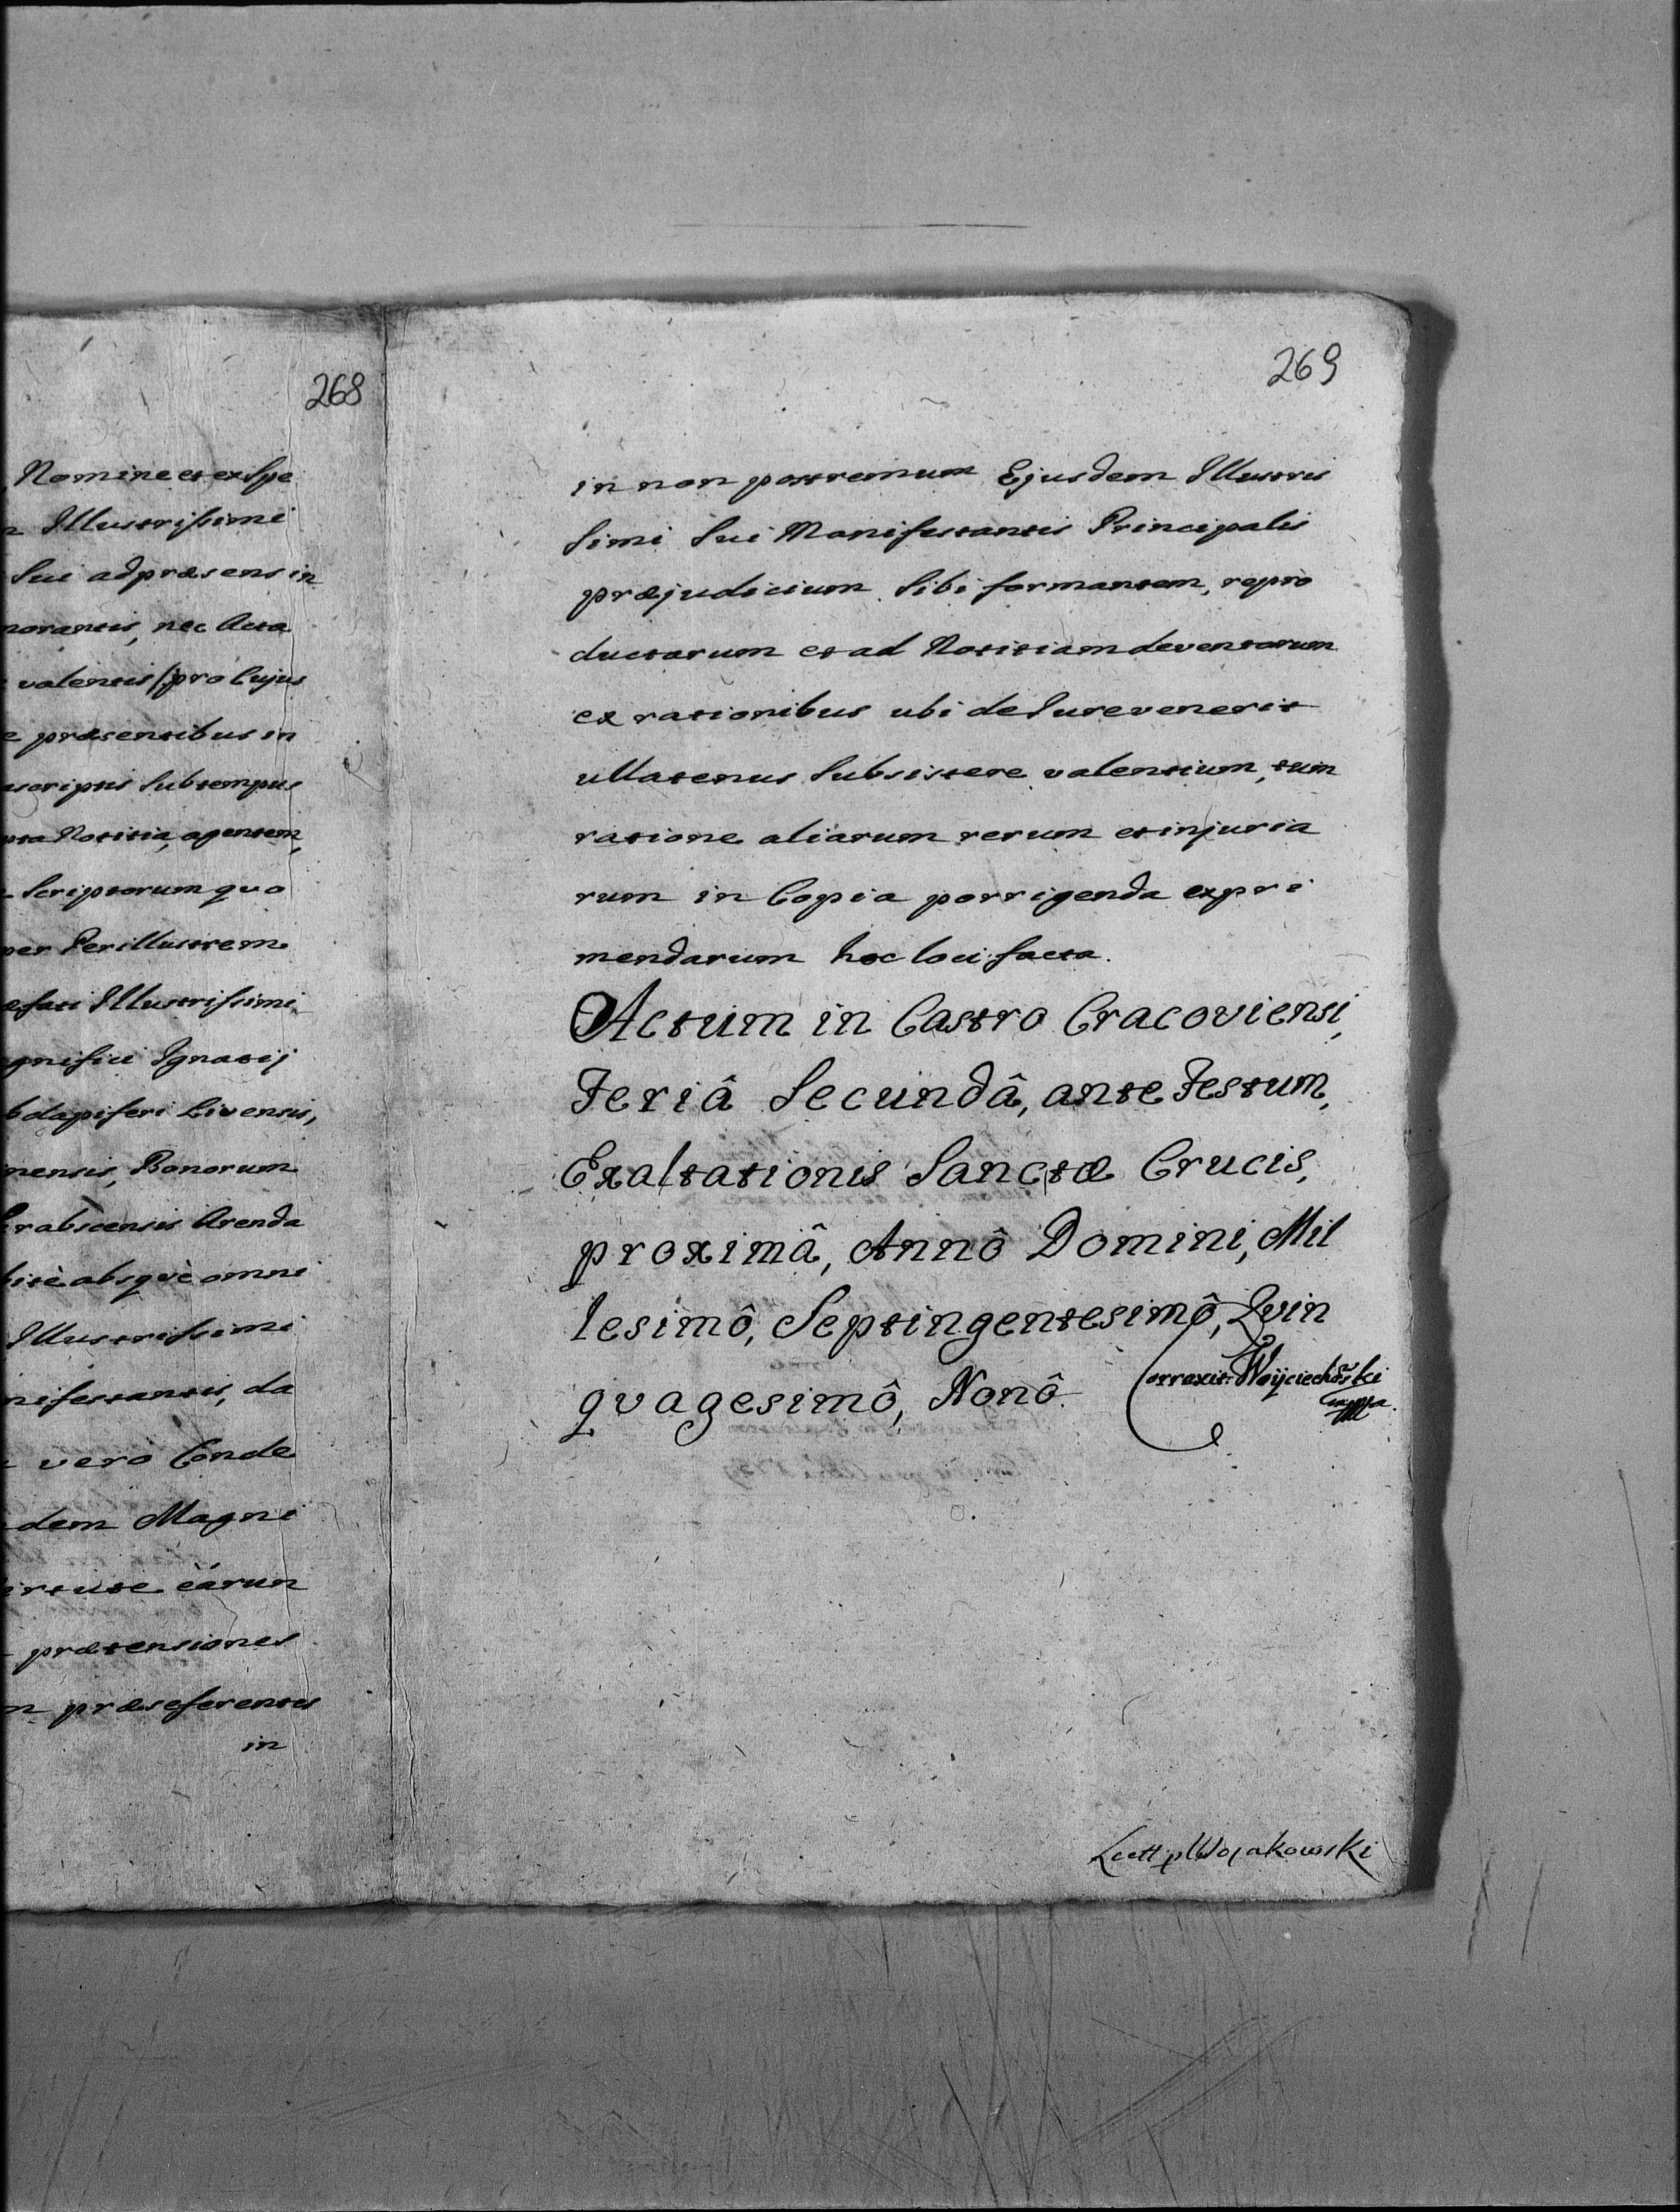 268
Nomine et ex Spe
Illustrissimi
Sui ad præsens in
morantis, nec Acta
valentis /:pro Cujus
præsentibus in
scriptis Sub tempus
Notitia, agentem,
Scriptorum quo
per Perillustrem
Illustrissimi
Ignatij
bdapiferi Livensis,
nensis, Bonorum
rabscensis Arenda
absqvè omni
Illustrissimi
nifestantis, da
vero Conde
dem Magni
irtute eárun
prætensiones
præseferentis
in
269
in non postremum Ejusdem Illustris
simi Sui Manifestantis Principalis
præjudicium Sibi formantem, repro
ductarum et ad Notitiam deventarum
ex rationibus ubi de Jure venerit
ullatenus Subsistere valentium, tum
ratione aliarum rerum et injuria
rum in Copia porrigenda expri
mendarum hoc loci facta.
Actum in Castro Cracoviensi,
Feriâ Secundâ, ante Festum,
Exaltationis Sanctæ Crucis,
proximâ, Annô Domini, Mil
lesimô, Septingentesimô, Qvin
qvagesimô, Nonô.
Correxit: Woyciechowski
mppa.
Lectt p Wojakowski